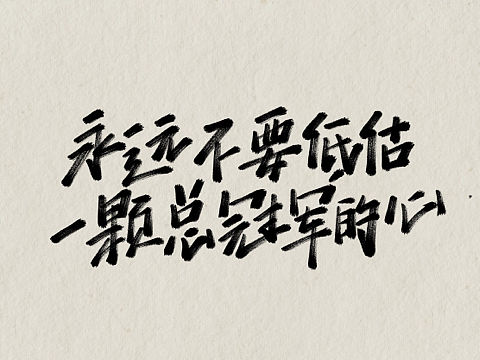 永远不要低估
一颗总冠军的心